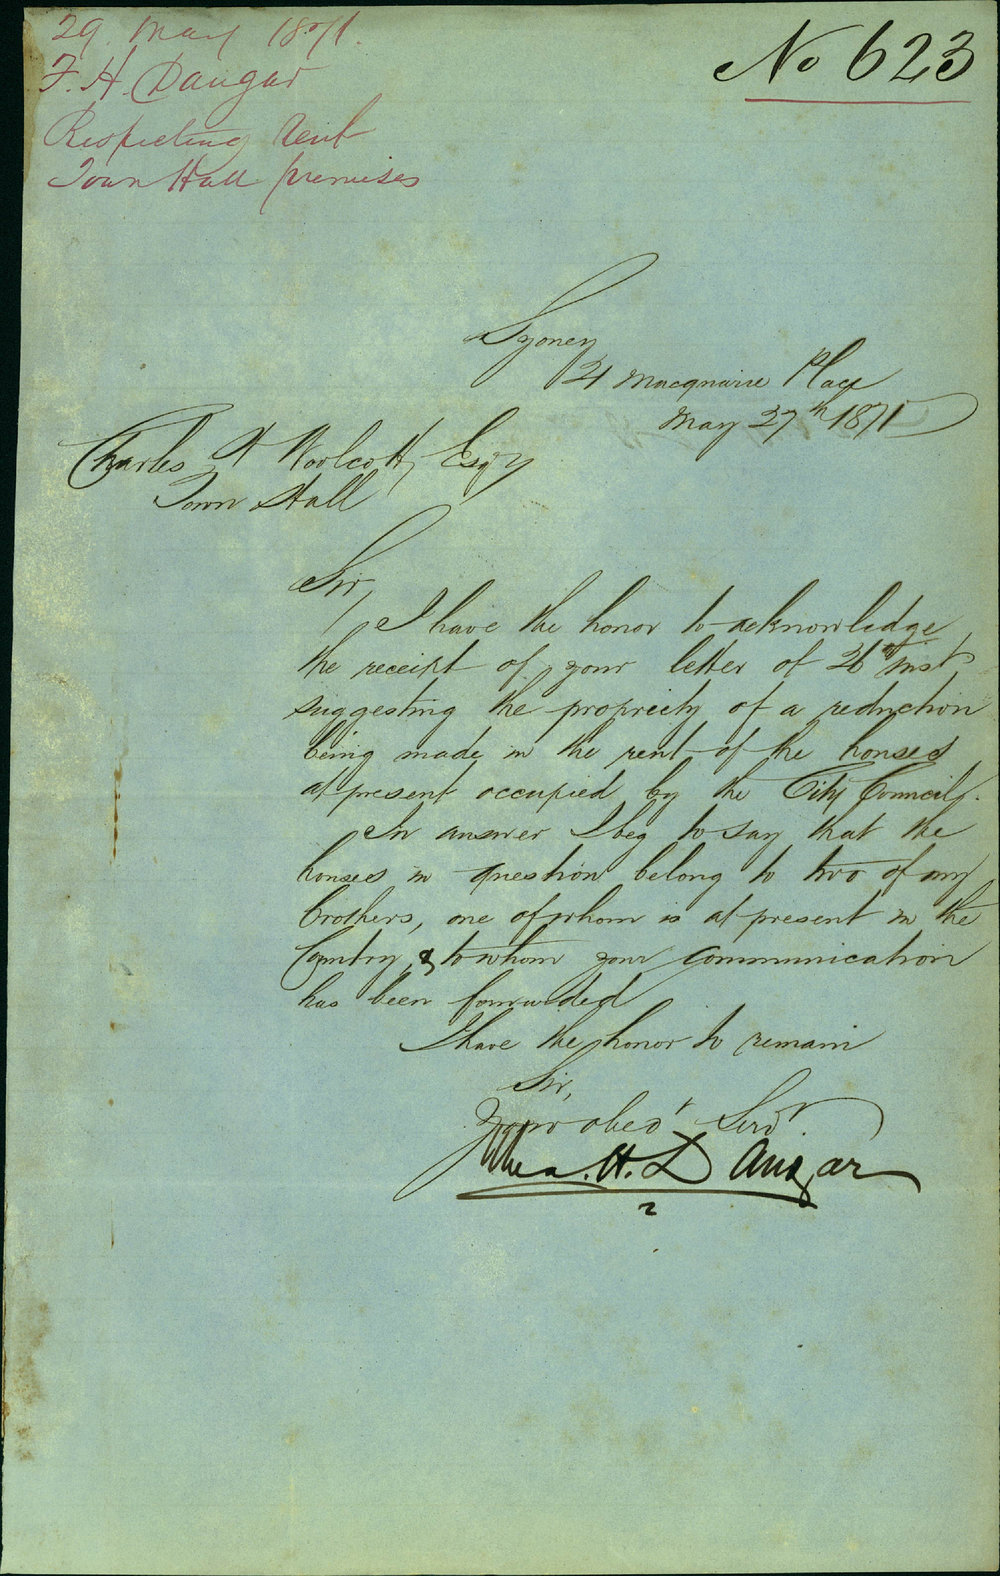 29 May 1871.
F. H. Dangar
Respecting Rent
Town Hall premises
No 623
Sydney
21 Macquarie Place
May 27th 1871
Charles H Woolcott, Esqr
Town Hall
Sir,
I have the honor to acknowledge
the receipt of your letter of 26th inst
suggesting the propriety of a reduction
being made in the rent of the houses
at present occupied by the City Council.
In answer I beg to say that the
houses in question belong to two of my
brothers, one of whom is at present in the
Country, & to whom your communication
has been forwarded
I have the honor to remain
Sir,
Your obedt Servt
H. Dangar